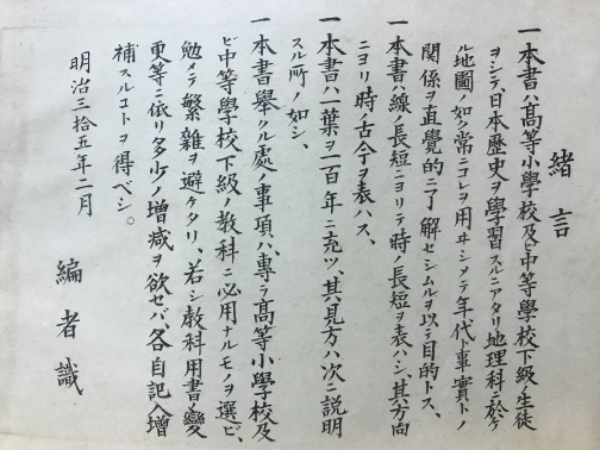 緒言
一本書ハ高等小學校及ビ中等學校下級ノ生徒
ヲシテ、日本歷史ヲ學習スルニアタリ地理科ニ於ケ
ル地圖ノ如ク常ニコレヲ用ヰシメテ年代ト事實トノ
關係ヲ直覺的ニ了解セシムルヲ以テ目的トス、
一本書ハ線ノ長短ニヨリテ時ノ長短ヲ表ハシ、其方向
ニヨリ時ノ古今ヲ表ハス、
一本書ハ一葉ヲ一百年ニ充ツ、其見方ハ次ニ說明
スル所ノ如シ、
一本書舉クル處ノ事項ハ、專ラ高等小學校及
ビ中等學校下級ノ教科ニ必用ナルモノヲ選ビ、
勉メテ繁雜ヲ避ケタリ、若シ教科用書ノ變
更等ニ依リ多少ノ增减ヲ欲セバ、各自記入增
補スルコトヲ得ベシ。
明治三拾五年二月
編者識